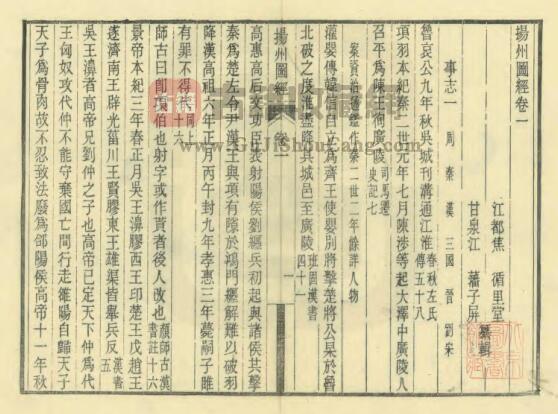 揚州圖經卷一
江都焦 循里堂
甘泉江 藩子屏 纂輯
事志一 周 秦 漢 三國 晉 劉宋
魯哀公九年秋吳城刋溝通江淮春秋左氏傳五十八
項羽本紀秦二世元年七月陳涉等起大澤中廣陵人
召平爲陳王徇廣陵司馬遷史記七
案資治通鑑作秦二世二年餘詳人物
灌嬰傳韓信自立爲齊王使嬰別將擊楚將公杲於魯
北破之度淮盡降其城邑至廣陵班固漢書四十一
揚州圖經 卷一 一
高惠高后文功臣表射陽侯劉纏兵初起與諸侯共擊
秦爲楚左令尹漢王與項有隙於鴻門纏解難以破羽
降漢高祖六年正月丙午封九年孝惠三年薨嗣子睢
有罪不得代同上十六
師古曰卽項伯也射字或作貰者後人改也顏師古漢書註十六
景帝本紀三年春正月吳王濞膠西王卬楚王戊趙王
遂濟南王辟光菑川王賢膠東王雄渠皆舉兵反漢書五
吳王濞者高帝兄劉仲之子也高帝已定天下仲爲代
王匈奴攻代仲不能守棄國亡間行走雒陽自歸天子
天子爲骨肉故不忍致法廢爲郃陽侯高帝十一年秋
GuJiShouCang.Com